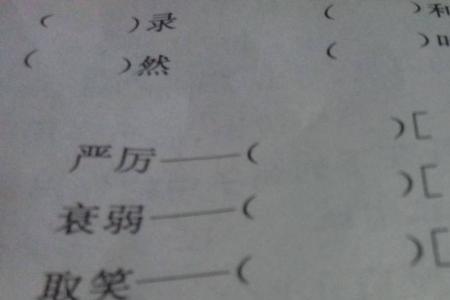 (    )录    (    )和
(    )然    (    )
严厉——(    )[
衰弱——(    )[
取笑——(    )[